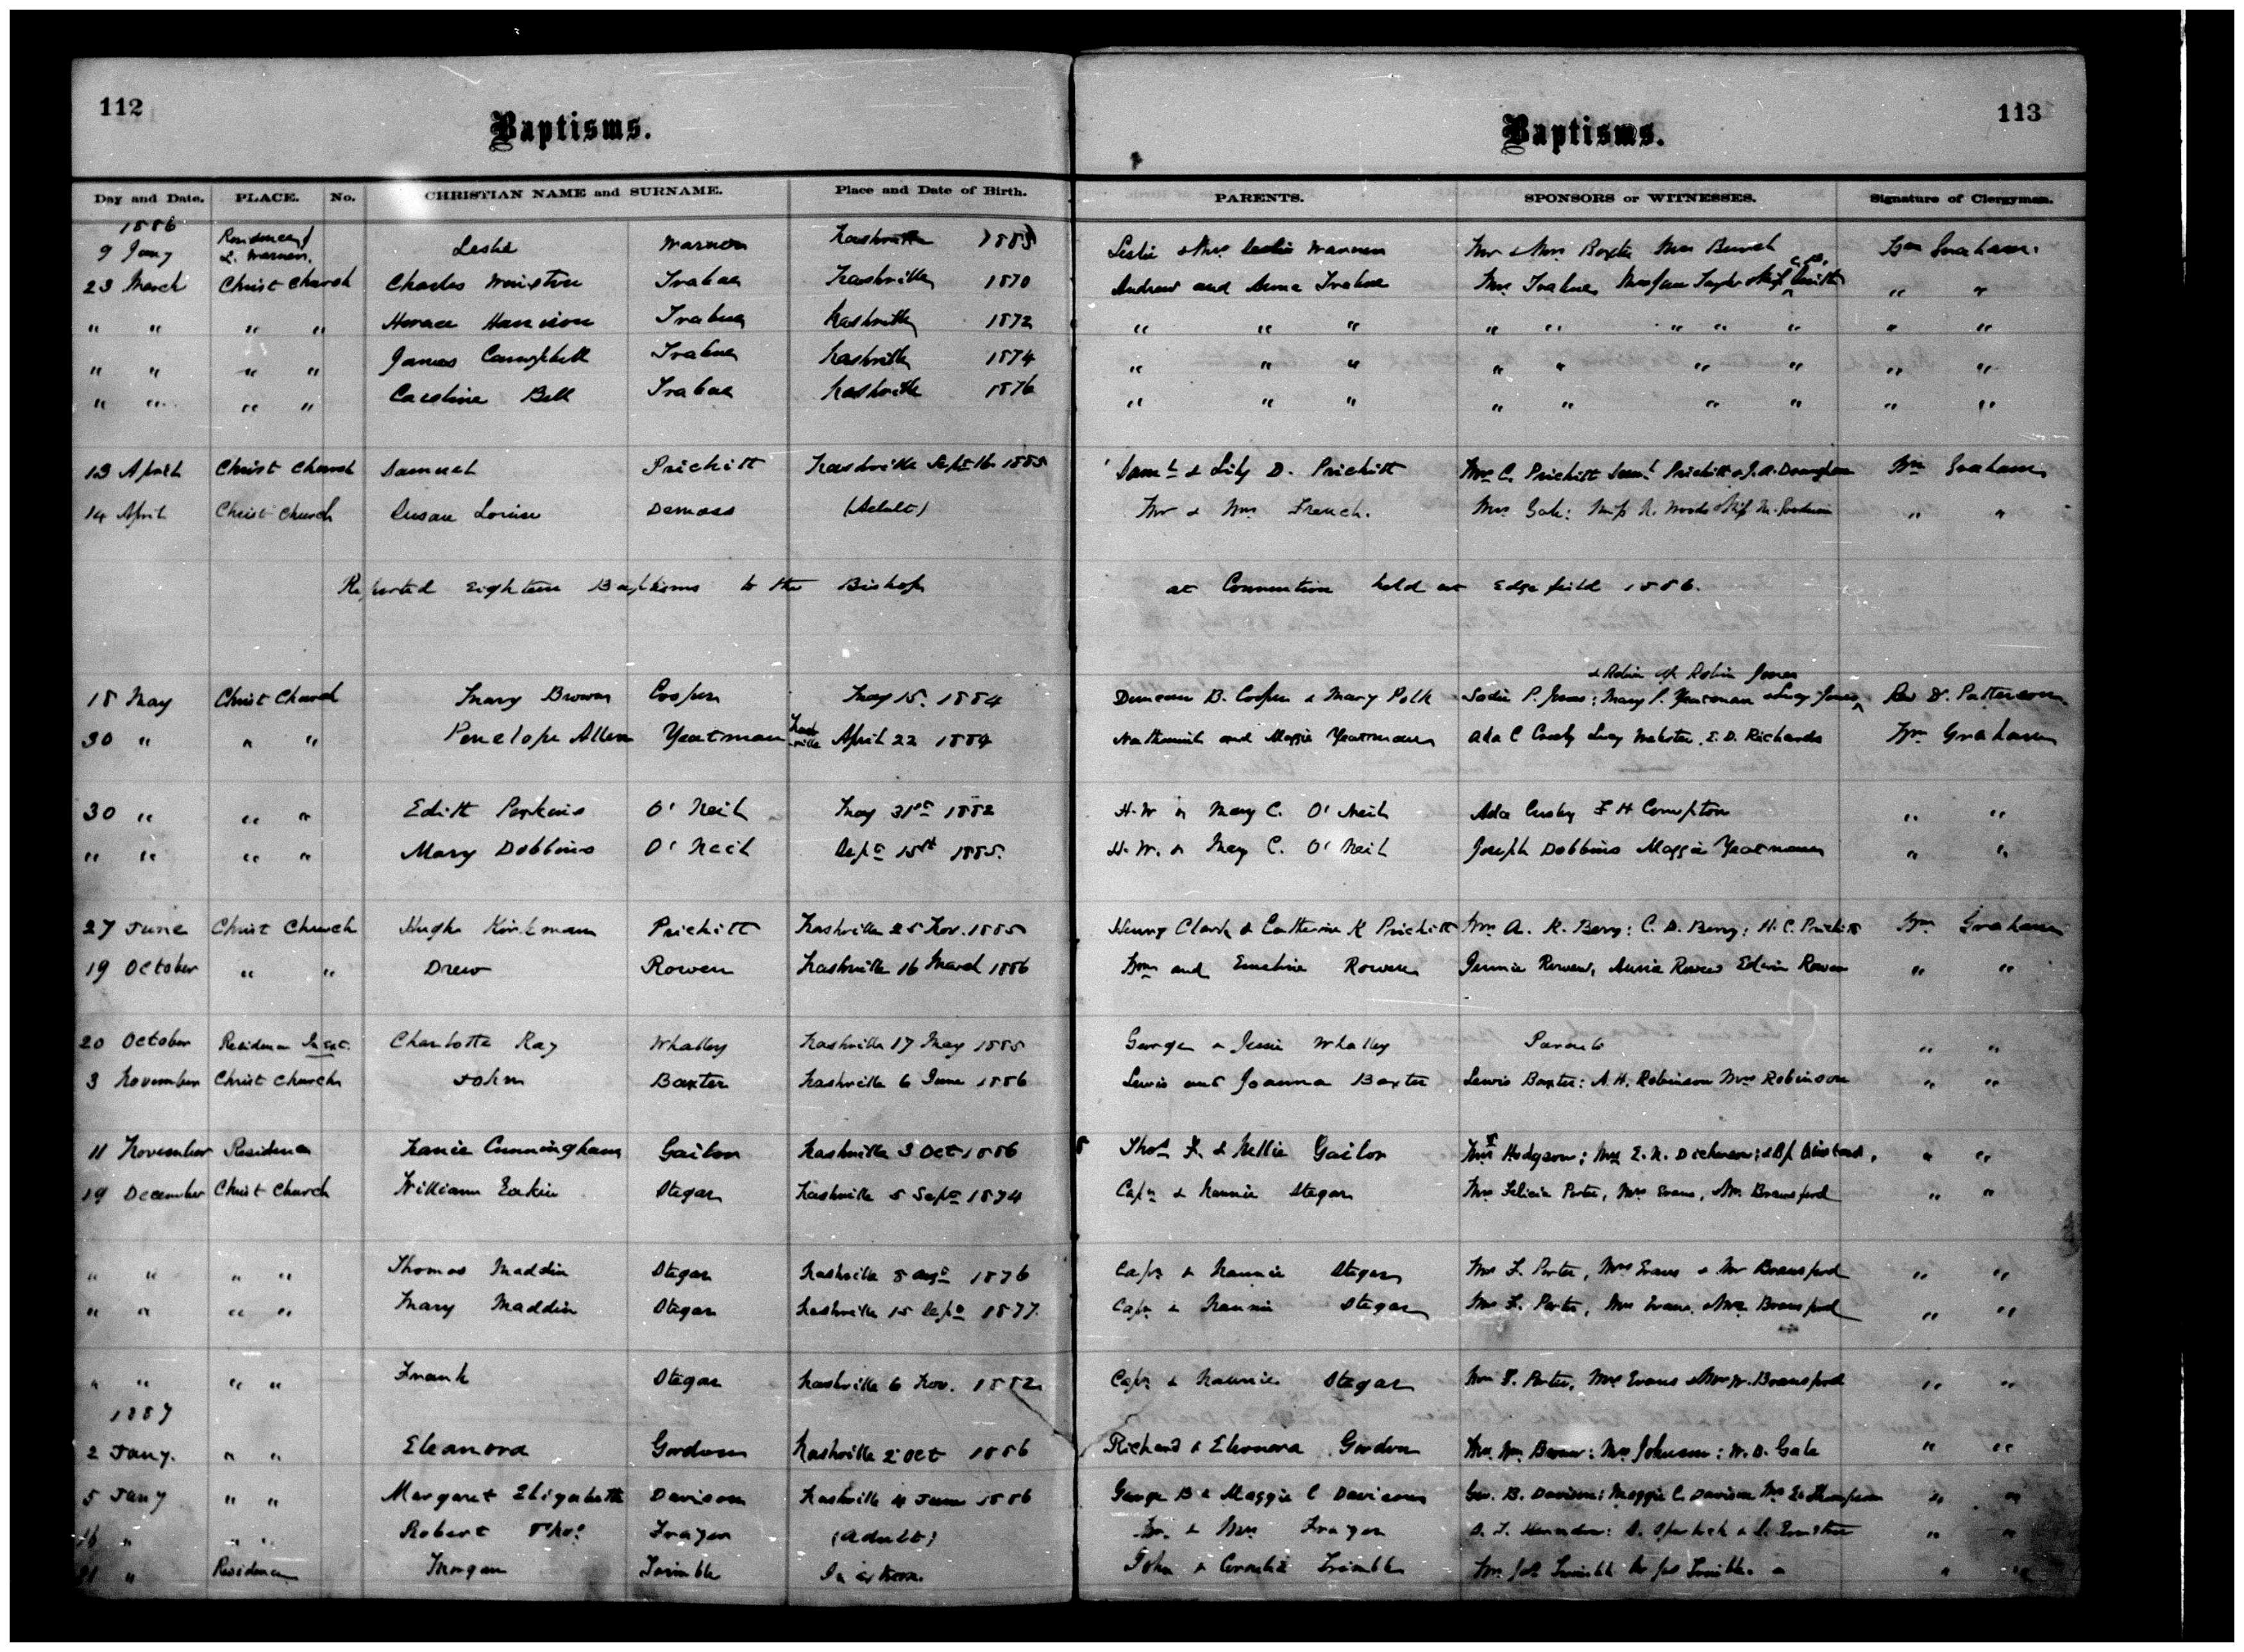 112
Baptisms.
Baptisms.
113
Day and Date. PLACE. No. CHRISTIAN NAME and SURNAME. Place and Date of Birth. PARENTS. SPONSORS or WITNESSES. Signature of Clergyman.
1886
9 Jany Residence of L. Warner. Leslie Warner Nashville 1885 Leslie & Mrs Leslie Warner Mr & Mrs Baxter Mrs Burch Wm Graham.
23 March Christ Church Charles Winston Trabue Nashville 1870 Andrew and Anna Trabue Mrs Trabue, " "
" " " " Horace Harrison Trabue Nashville 1872 " " " " " " " " " "
" " " " James Campbell Trabue Nashville 1874 " " " " " " " " "
" " " " Caroline Bell Trabue Nashville 1876 " " " " " " " " "
13 April Christ Church Samuel Prichitt Nashville Sept 16 1885 Saml & Lily D. Prichitt Mrs C. Prichitt Saml Prichitt & J. A. Wm Graham
14 April Christ Church Susan Louise Demoss (Adult) Mr & Mrs French. Mrs Gale: Miss N. Woods & Miss M. " "
Reported Eighteen Baptisms to the Bishop at Convention held at Edgefield 1886.
& Robin ap Robin Jones
18 May Christ Church Mary Brown Cooper May 15. 1884 Duncan B. Cooper & Mary Polk Sadie P. Jones; Mary P. Yeatman & Lucy Jones Rev Dr. Patterson
30 " " " Penelope Allen Yeatman Nashville April 22 1884 Nathaniel and Maggie Yeatman Ada C Lucy Webster, E. D. Richards Wm Graham
30 " " " Edith Perkins O'Neil May 31st 1882 H. W & Mary C. O'Neil Ada F H Compton " "
" " " " Mary Dobbins O'Neil Sept 15th 1885. H. W. & Mary C. O'Neil Joseph Dobbins Maggie Yeatman " "
27 June Christ Church Hugh Kirkman Prichitt Nashville 25 Nov. 1885 Henry Clark & Catherine K Prichitt Mrs A. K. Berry: C. D. Berry; H. C. Prichitt Wm Graham
19 October " " Drew Rowen Nashville 16 March 1886 Wm and Emeline Rowen Jennie Rowen, Annie Rowen Edwin Rowen " "
20 October Residence In ext. Charlotte Ray Whalley Nashville 17 May 1885 George & Jessie Whalley Parents " "
3 November Christ Church John Baxter Nashville 6 June 1886 Lewis and Joanna Baxter Lewis Baxter: A. H. Robinson Mrs Robinson " "
11 November Residence Nanie Cunningham Gailor Nashville 3 Oct 1886 Thos F. & Nellie Gailor Mrs Hodgson; Mrs E. N. Dickinson; & Bp " "
19 December Christ Church William Eakin Stegar Nashville 5 Sept 1874 Capt & Nannie Stegar Mrs Felicia Porter, Mrs Evans, & Mr. Bransford " "
" " " " Thomas Maddin Stegar Nashville 8 Augt 1876 Capt & Nannie Stegar Mrs F. Porter, Mrs Evans & Mr Bransford " "
" " " " Mary Maddin Stegar Nashville 15 Sept 1877. Capt & Nannie Stegar Mrs F. Porter, Mrs Evans, & Mrs. Bransford " "
" " " " Frank Stegar Nashville 6 Nov. 1882 Capt & Nannie Stegar Mrs F. Porter, Mrs Evans & Mrs W. Bransford " "
1887
2 Jany. " " Eleanora Gordon Nashville 2 Oct 1886 Richard & Eleonora Gordon Mrs. Wm. Mrs Johnson: W. D. Gale " "
5 Jany " " Margaret Elizabeth Davison Nashville 4 June 1886 George B & Maggie C Davison Geo. B. Davison: Maggie C. Davison Mrs E. Thompson " "
16 " " " Robert Thos Frazer (Adult) Mr. & Mrs Frazer " "
" Residence Morgan Trimble In extrem. John & Cornelia Trimble " "